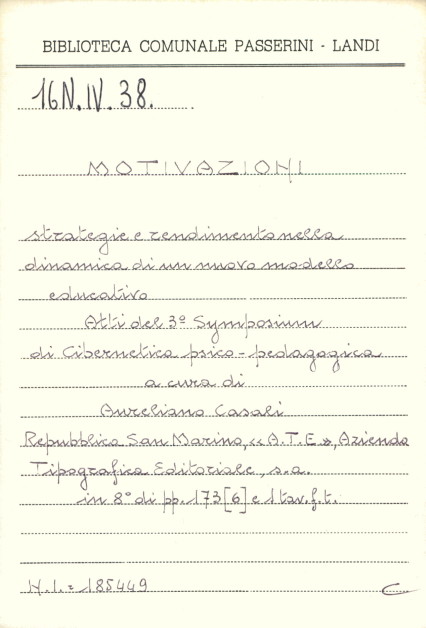 BIBLIOTECA COMUNALE PASSERINI - LANDI
16N.IV.38.
MOTIVAZIONI
strategie e rendimento nella
dinamica di un nuovo modello
educativo
Atti del 3º Symposium
di Cibernetica psico-pedagogica
a cura di
Aureliano Casali
Repubblica San Marino, «A.T.E», Azienda
Tipografica Editoriale, s.a.
in 8º di pp. 173[6] e 1 tav.f.t.
N.I.= 185449
C